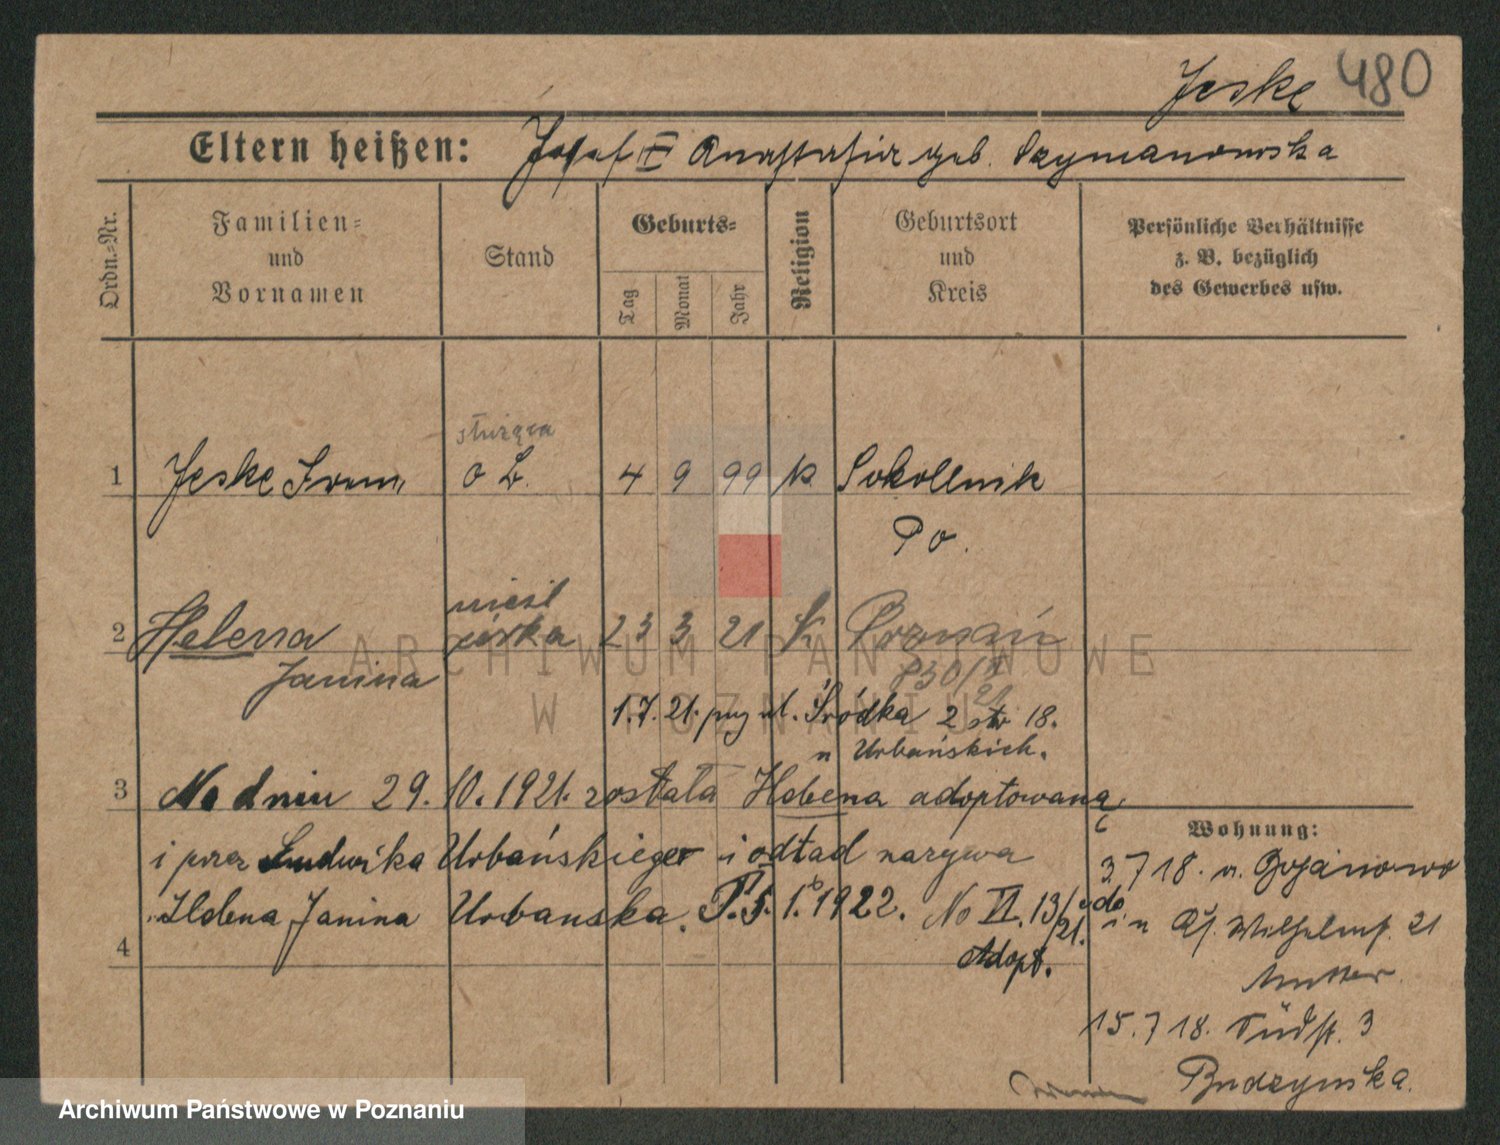 Jeske 480
Eltern heißen: Josef Anastasia geb. Szymanowska
Ordn.-Nr.
Familien=
und
Vornamen
Stand
Geburts=
Tag
Monat
Jahr
Religion
Geburtsort
und
Kreis
Persönliche Verhältnisse
z. B. bezüglich
des Gewerbes usw.
służąca
1 Jeske o B. 4 9 99 k Sokollnik
Po.
nieśl
2 Helena córka 23 3 21 K Poznań
Janina 830/II
21
1.7.21. ul. Śródka 2 18.
u Urbańskich.
3 Na dniu 29.10.1921. została Helena adoptowaną
i przez Ludwika Urbańskiego i odtąd nazywa
Helena Janina Urbanska. 1922. No VI. 13/
21.
4 Adopt.
Wohnung:
3.7 18. n. Gojanowo
21
Mutter
15.7 18. Südstr. 3
Budzynska.
ARCHIWUM PAŃSTWOWE
W POZNANIU
Archiwum Państwowe w Poznaniu